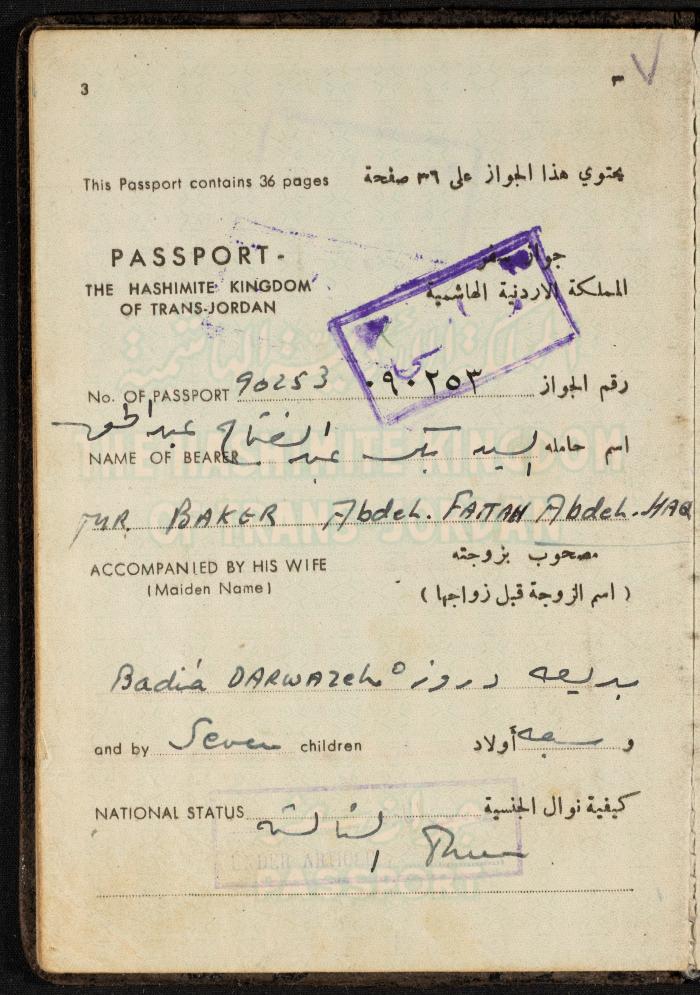 3 ٣
This Passport contains 36 pages يحتوي هذا الجواز على ٣٦ صفحة
PASSPORT- جواز سفر
THE HASHIMITE KINGDOM المملكة الاردنية الهاشمية
OF TRANS-JORDAN
No. OF PASSPORT 90253 ٠٩٠٢٥٣ رقم الجواز
NAME OF BEARER السيد بكر عبد الفتاح عبد الحق اسم حامله
MR. BAKER Abdel. FATTAH Abdel. HAQ
ACCOMPANIED BY HIS WIFE مصحوب بزوجته
(Maiden Name) (اسم الزوجة قبل زواجها)
Badiá DARWAZeh بديعه دروزه
and by Seven children و سبعه أولاد
NATIONAL STATUS كيفية نوال الجنسية
الثالثة Three
UNDER ARTICLE
THE HASHIMITE KINGDOM
OF TRANS-JORDAN
PASSPORT